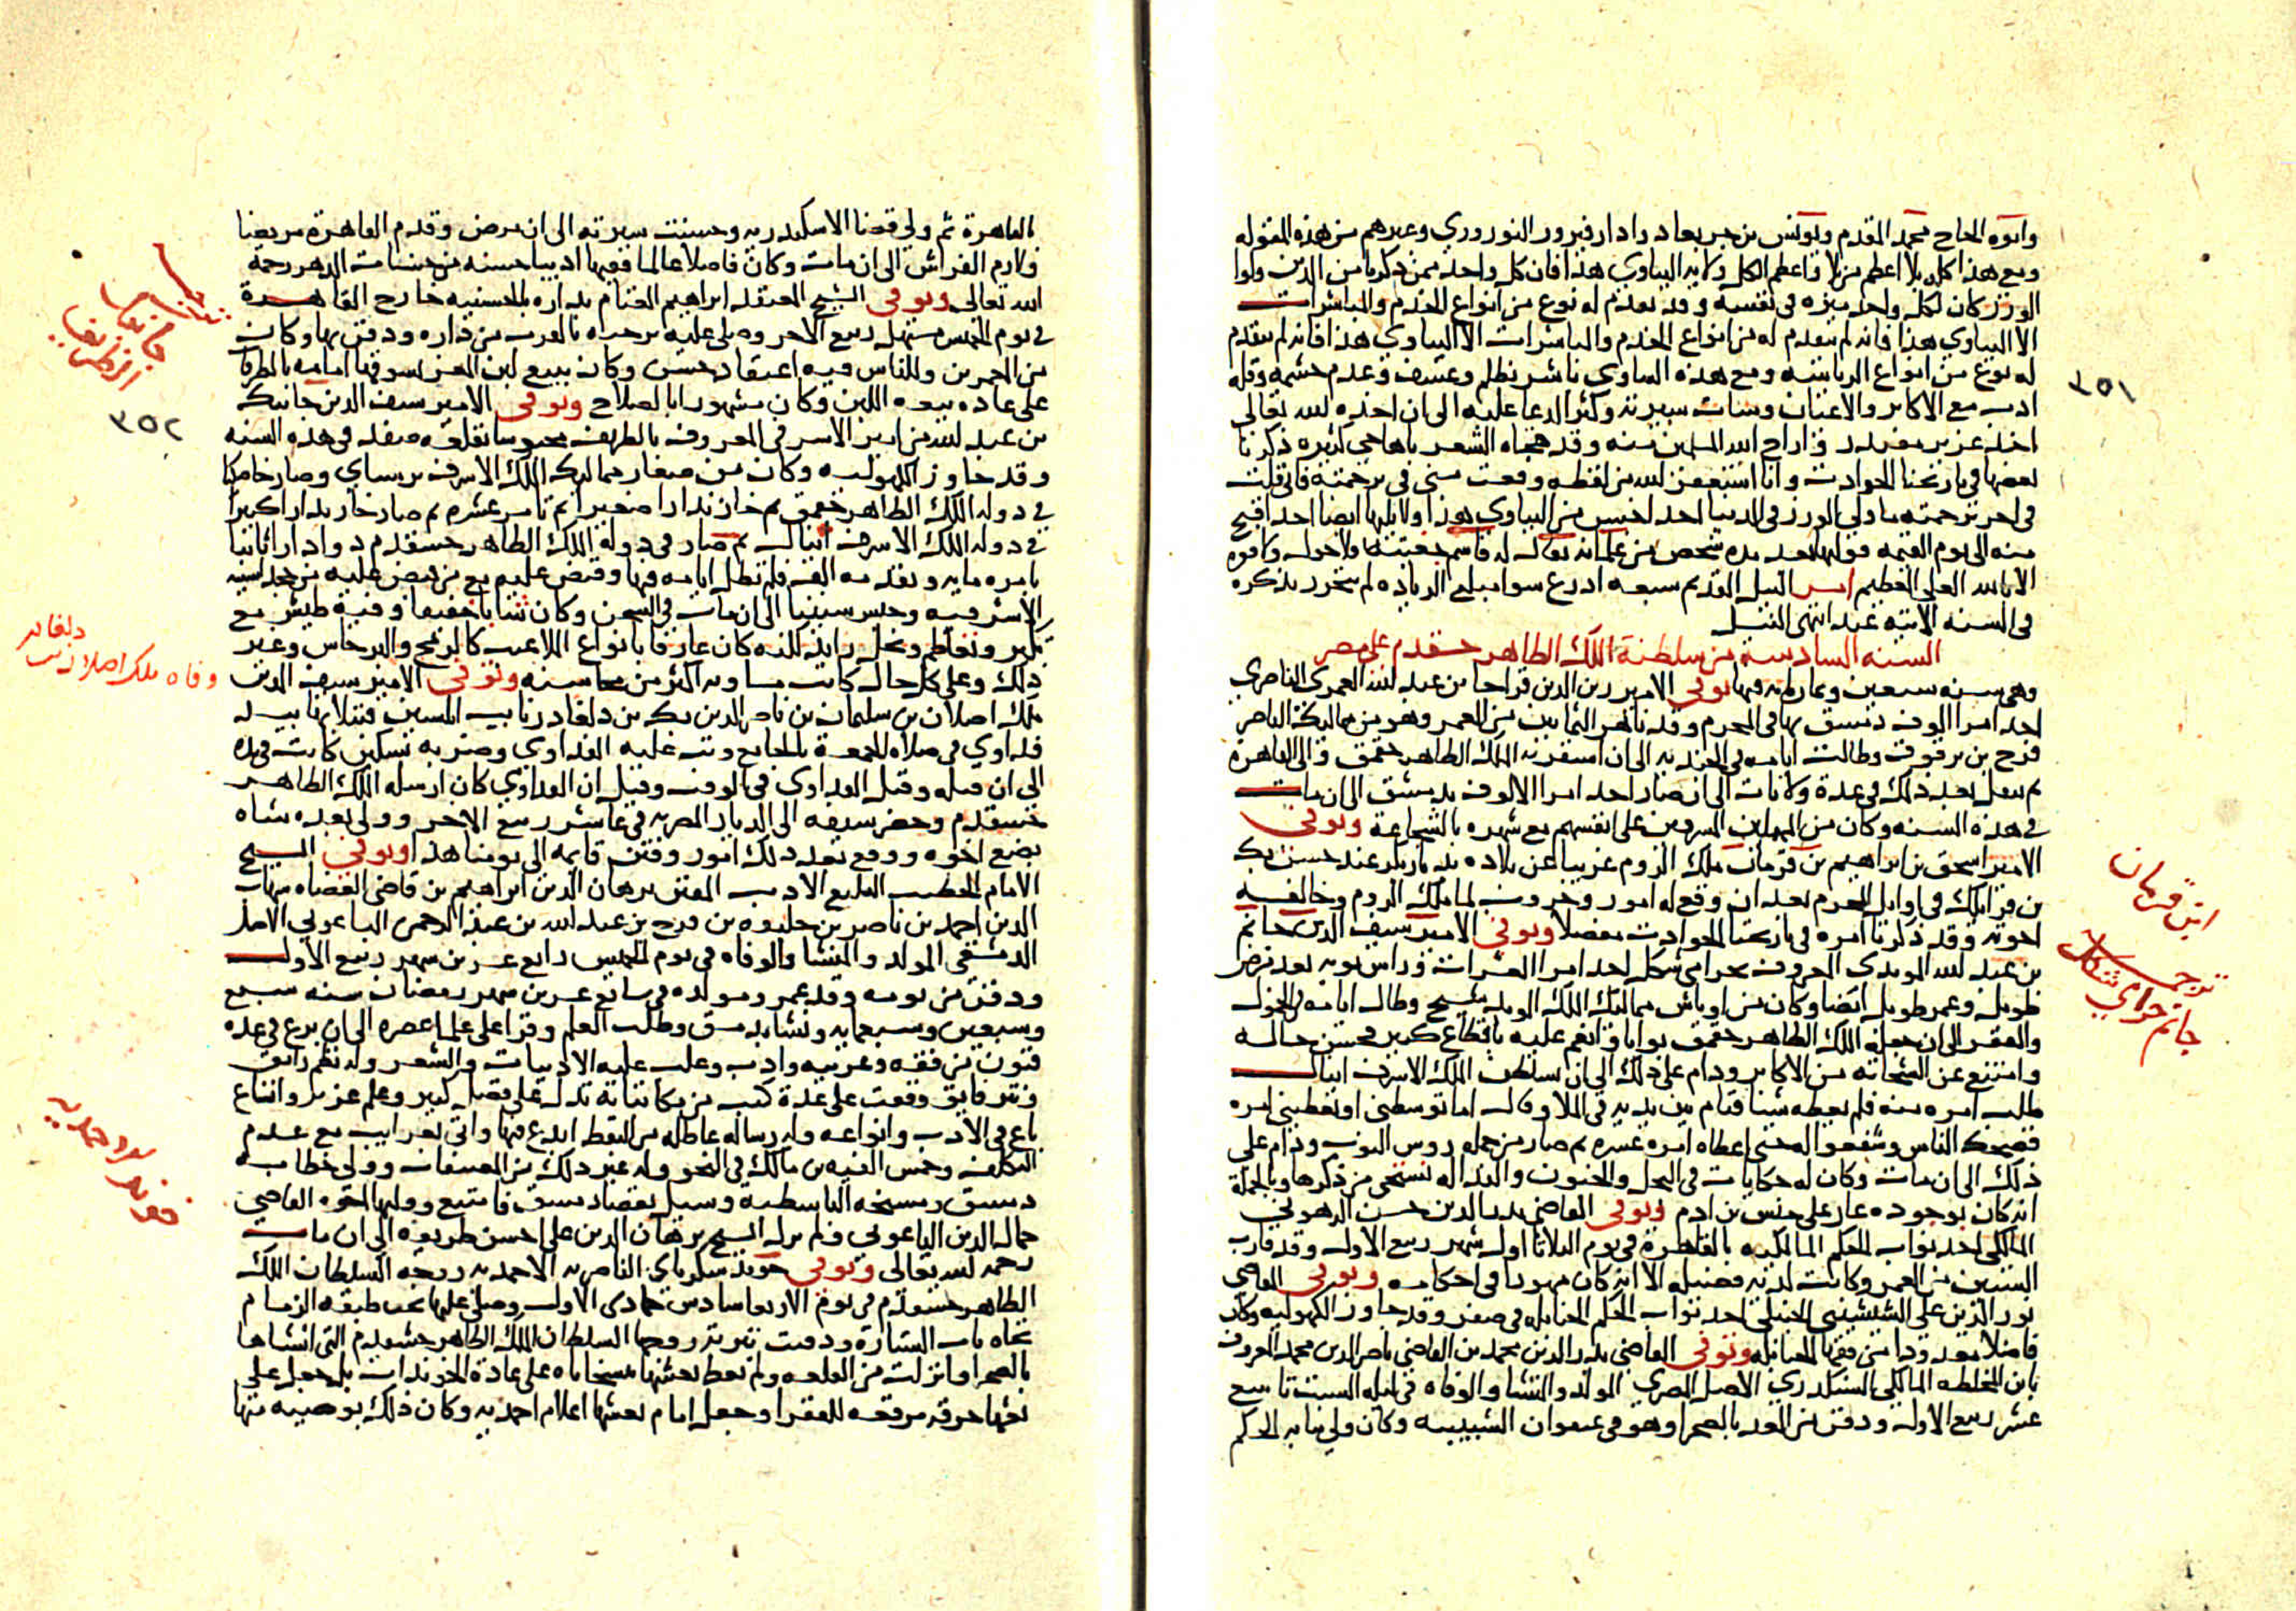 وابوه الحاج محمد المقدم ويونس بن جربغا دوادار فيروز النوروزي وغيرهم من هذه المقولة
ومع هذا كله بلا اعظم من بلا واعظم الكل ولاية البباوي هذا فان كل واحد ممن ذكرنا من الذين ولوا
الوزر كان لكل واحد ميزه في نفسه وقد تقدم له نوع من انواع الخدم والمباشرات
الا البباوي هذا فانه لم يتقدم له من انواع الخدم والمباشرات الا البباوي هذا فانه لم يتقدم
له نوع من انواع الرياسة ومع هذه المساوي باشر بظلم وعسف وعدم حشمة وقلة
ادب مع الاكابر والاعيان وساءت سيرته وكثر الدعا عليه الى ان اخذه الله تعالى
اخذ عزيز مقتدر واراح الله المسلمين منه وقد هجاه الشعرا باهاجي كثيرة ذكرنا
بعضها في تاريخنا الحوادث وانا استغفر الله من لفظه وقعت مني في ترجمته فاني قلت
في اخر ترجمته ما ولي الوزر في الدنيا احد اخس من البباوي هذا ولا يليها ايضا احد اقبح
منه الى يوم القيمة فوليها بعد مده شخص من غلمانه يقال له قاسم جغيته ولا حول ولا قوة
الا بالله العلي العظيم امر النيل القديم سبعه اذرع سوا مبلغ الزياده لم تحرر يذكره
في السنه الاتيه عند انتهى النيل
السنه السادسة من سلطنة الملك الظاهر خشقدم على مصر
وهي سنه سبعين وثمانمايه فيها توفي الامير زين الدين قراجا بن عبد الله العمري الناصري
احد امرا الالوف دمشق بها في المحرم وقد ناهز الثمانين من العمر وهو من مماليك الناصر
فرج بن برقوق وطالت ايامه في الجنديه الى ان امتقر به الملك الظاهر جقمق والي القاهرة
ثم تنقل بعد ذلك في عدة ولايات الى ان صار احد امرا الالوف بدمشق الى ان مات
في هذه السنه وكان من المهملين المسرفين على انفسهم مع شهره بالشجاعة وتوفي
الامير اسحق بن ابراهيم بن قرمان ملك الروم غريبا عن بلاده بديار بكر عند حسن بك
بن قرايلك في اوايل المحرم بعد ان وقع له امور وحروب لما ملك الروم وخالفه
اخوته وقد ذكرنا امره في تاريخنا الحوادث مفصلا وتوفي الامير سيف الدين جانم
بن عبد الله المويدي المعروف بحرامي شكل احد امرا العشرات وراس نوبه بعد مرض
طويل وعمر طويل ايضا وكان من اوباش مماليك الملك المويد شيخ وطال ايامه في الخمول
والفقر الى ان جعله الملك الظاهر جقمق بوابا وانعم عليه باقطاع كبير فحسن حاله
وامتنع عن الشحاته من الاكابر ودام على ذلك الى ان تسلطن الملك الاشرف اينال
طلب امره منه فلم يعطه شيئا فقام بين يديه في الملا وقال اما توسطني او تعطيني امره
فضحك الناس وشفعوا له حتى اعطاه امره عشره ثم صار من جمله روس النوب ودام على
ذلك الى ان مات وكان له حكايات في البخل والجنون والنداله نستحي من ذكرها وبالجملة
انه كان بوجوده عار على جنس بني ادم وتوفي القاضي بدر الدين حسن الرهوني
المالكي احد نواب الحكم المالكيه بالقاهرة في يوم الثلاثا اول شهر ربيع الاول وقد قارب
الستين من العمر وكانت لديه فضيله الا انه كان مهورا في احكامه وتوفي القاضي
نور الدين علي الشيشيني الحنبلي احد نواب الحكم الحنابله في صفر وقد جاوز الكهوليه وكان
فاضلا معدودا من فقها الحنابله وتوفي القاضي بدر الدين محمد بن القاضي ناصر الدين محمد المعروف
بابن المخلطه المالكي السكندري الاصل المصري المولد والمنشا والوفاه في ليله السبت تاسع
عشر ربيع الاول ودفن من الغد بالصحرا وهو في عنفوان الشبيبه وكان ولي نيابه الحكم
ابن قرمان
ترجمه
جانم حرامي شكل
٣٥١
بالقاهرة ثم ولي قضا الاسكندريه وحسنت سيرته الى ان مرض وقدم القاهرة مريضا
ولازم الفراش الى ان مات وكان فاضلا عالما فقيها اديبا حسنه من حسنات الدهر رحمه
الله تعالى وتوفي الشيخ المعتقد ابراهيم الغنام بداره بالحسنيه خارج القاهرة
في يوم الخميس مستهل ربيع الاخر وصلي عليه بالقرب من داره ودفن بها وكان
من الخيرين وللناس فيه اعتقاد حسن وكان يبيع لبن المعز يسوقها امامه بالطرقات
على عاده بيعه اللبن وكان مشهورا بالصلاح وتوفي الامير سيف الدين جانبك
بن عبد الله من امير الاشرفي المعروف بالظريف محبوسا بقلعه صفد في هذه السنه
وقد جاوز الكهوليه وكان من صغار مماليك الملك الاشرف برسباي وصار خاصكيا
في دوله الملك الظاهر جقمق ثم خازندارا صغيرا ثم تامر عشره ثم صار خازندارا كبيرا
في دوله الملك الاشرف اينال ثم صار في دوله الملك الظاهر خشقدم دوادارا ثانيا
بامره مايه وتقدمه الف فلم تطل ايامه فيها وقبض عليه مع من قبض عليه من خجداشيه
الاشرفيه وحبس سنينا الى ان مات في السجن وكان شابا خفيفا وفيه طيش مع
تكبر وتعاظم وبخل زايد لكنه كان عارفا بانواع الملاعب كالرمح والبرجاس وغير
ذلك وعلى كل حال كانت مساويه اكثر من محاسنه وتوفي الامير سيف الدين
ملك اصلان بن سليمان بن ناصر الدين بك بن دلغادر نايب ابلستين قتيلا بها بيد
فداوي في صلاه الجمعة بالجامع وثب عليه الفداوي وضربه بسكين كانت في يده
الى ان قتله وقتل الفداوي في الوقت وقيل ان الفداوي كان ارسله الملك الظاهر
خشقدم وحضر سيفه الى الديار المصريه في عاشر ربيع الاخر وولي بعده شاه
بضع اخوه ووقع بعد ذلك امور وفتن قايمه الى يومنا هذا وتوفي الشيخ
الامام الخطيب البليغ الاديب المفنن برهان الدين ابراهيم بن قاضي القضاه شهاب
الدين احمد بن ناصر بن خليفه بن فرج بن عبد الله بن عبد الرحمن الباعوني الاصل
الدمشقي المولد والمنشا والوفاه في يوم الخميس رابع عشرين شهر ربيع الاول
ودفن من يومه وقد عمر ومولده في سابع عشرين شهر رمضان سنه سبع
وسبعين وسبعمايه ونشا بدمشق وطلب العلم وقرا على علما عصره الى ان برع في عده
فنون من فقه وعربيه وادب وغلب عليه الادبيات والشعر وله نظم رايق
ونثر فايق وقفت على عدة كتب من مكاتباته تدل على فضل كبير وعلم غزير واتساع
باع في الادب وانواعه وله رساله عاطله من النقط ابدع فيها واتى بغرايب مع عدم
التكلف وخمس الفيه بن مالك في النحو وله غير ذلك من المصنفات وولي خطابه
دمشق ومشيخه الباسطيه وسيل بقضا دمشق فامتنع ووليها اخوه القاضي
جمال الدين الباعوني ولم يزل الشيخ برهان الدين على احسن طريقه الى ان مات
رحمه الله تعالى وتوفي خوند شكرباي الناصريه الاحمديه زوجه السلطان الملك
الظاهر خشقدم في يوم الاربعا سادس جمادى الاول وصلي عليها تحت طبقه الزمام
تجاه باب الستارة ودفنت بتربة زوجها السلطان الملك الظاهر خشقدم التي انشاها
بالصحرا وانزلت من القلعه ولم تعط نعشها بشخاناه على عادة الخوندات بل جعل على
نعشها خرقه مرقعه للفقرا وجعل امام نعشها اعلام احمديه وكان ذلك بوصيه منها
٣٥٢
دلغادر
وفاه ملك اصلان بن